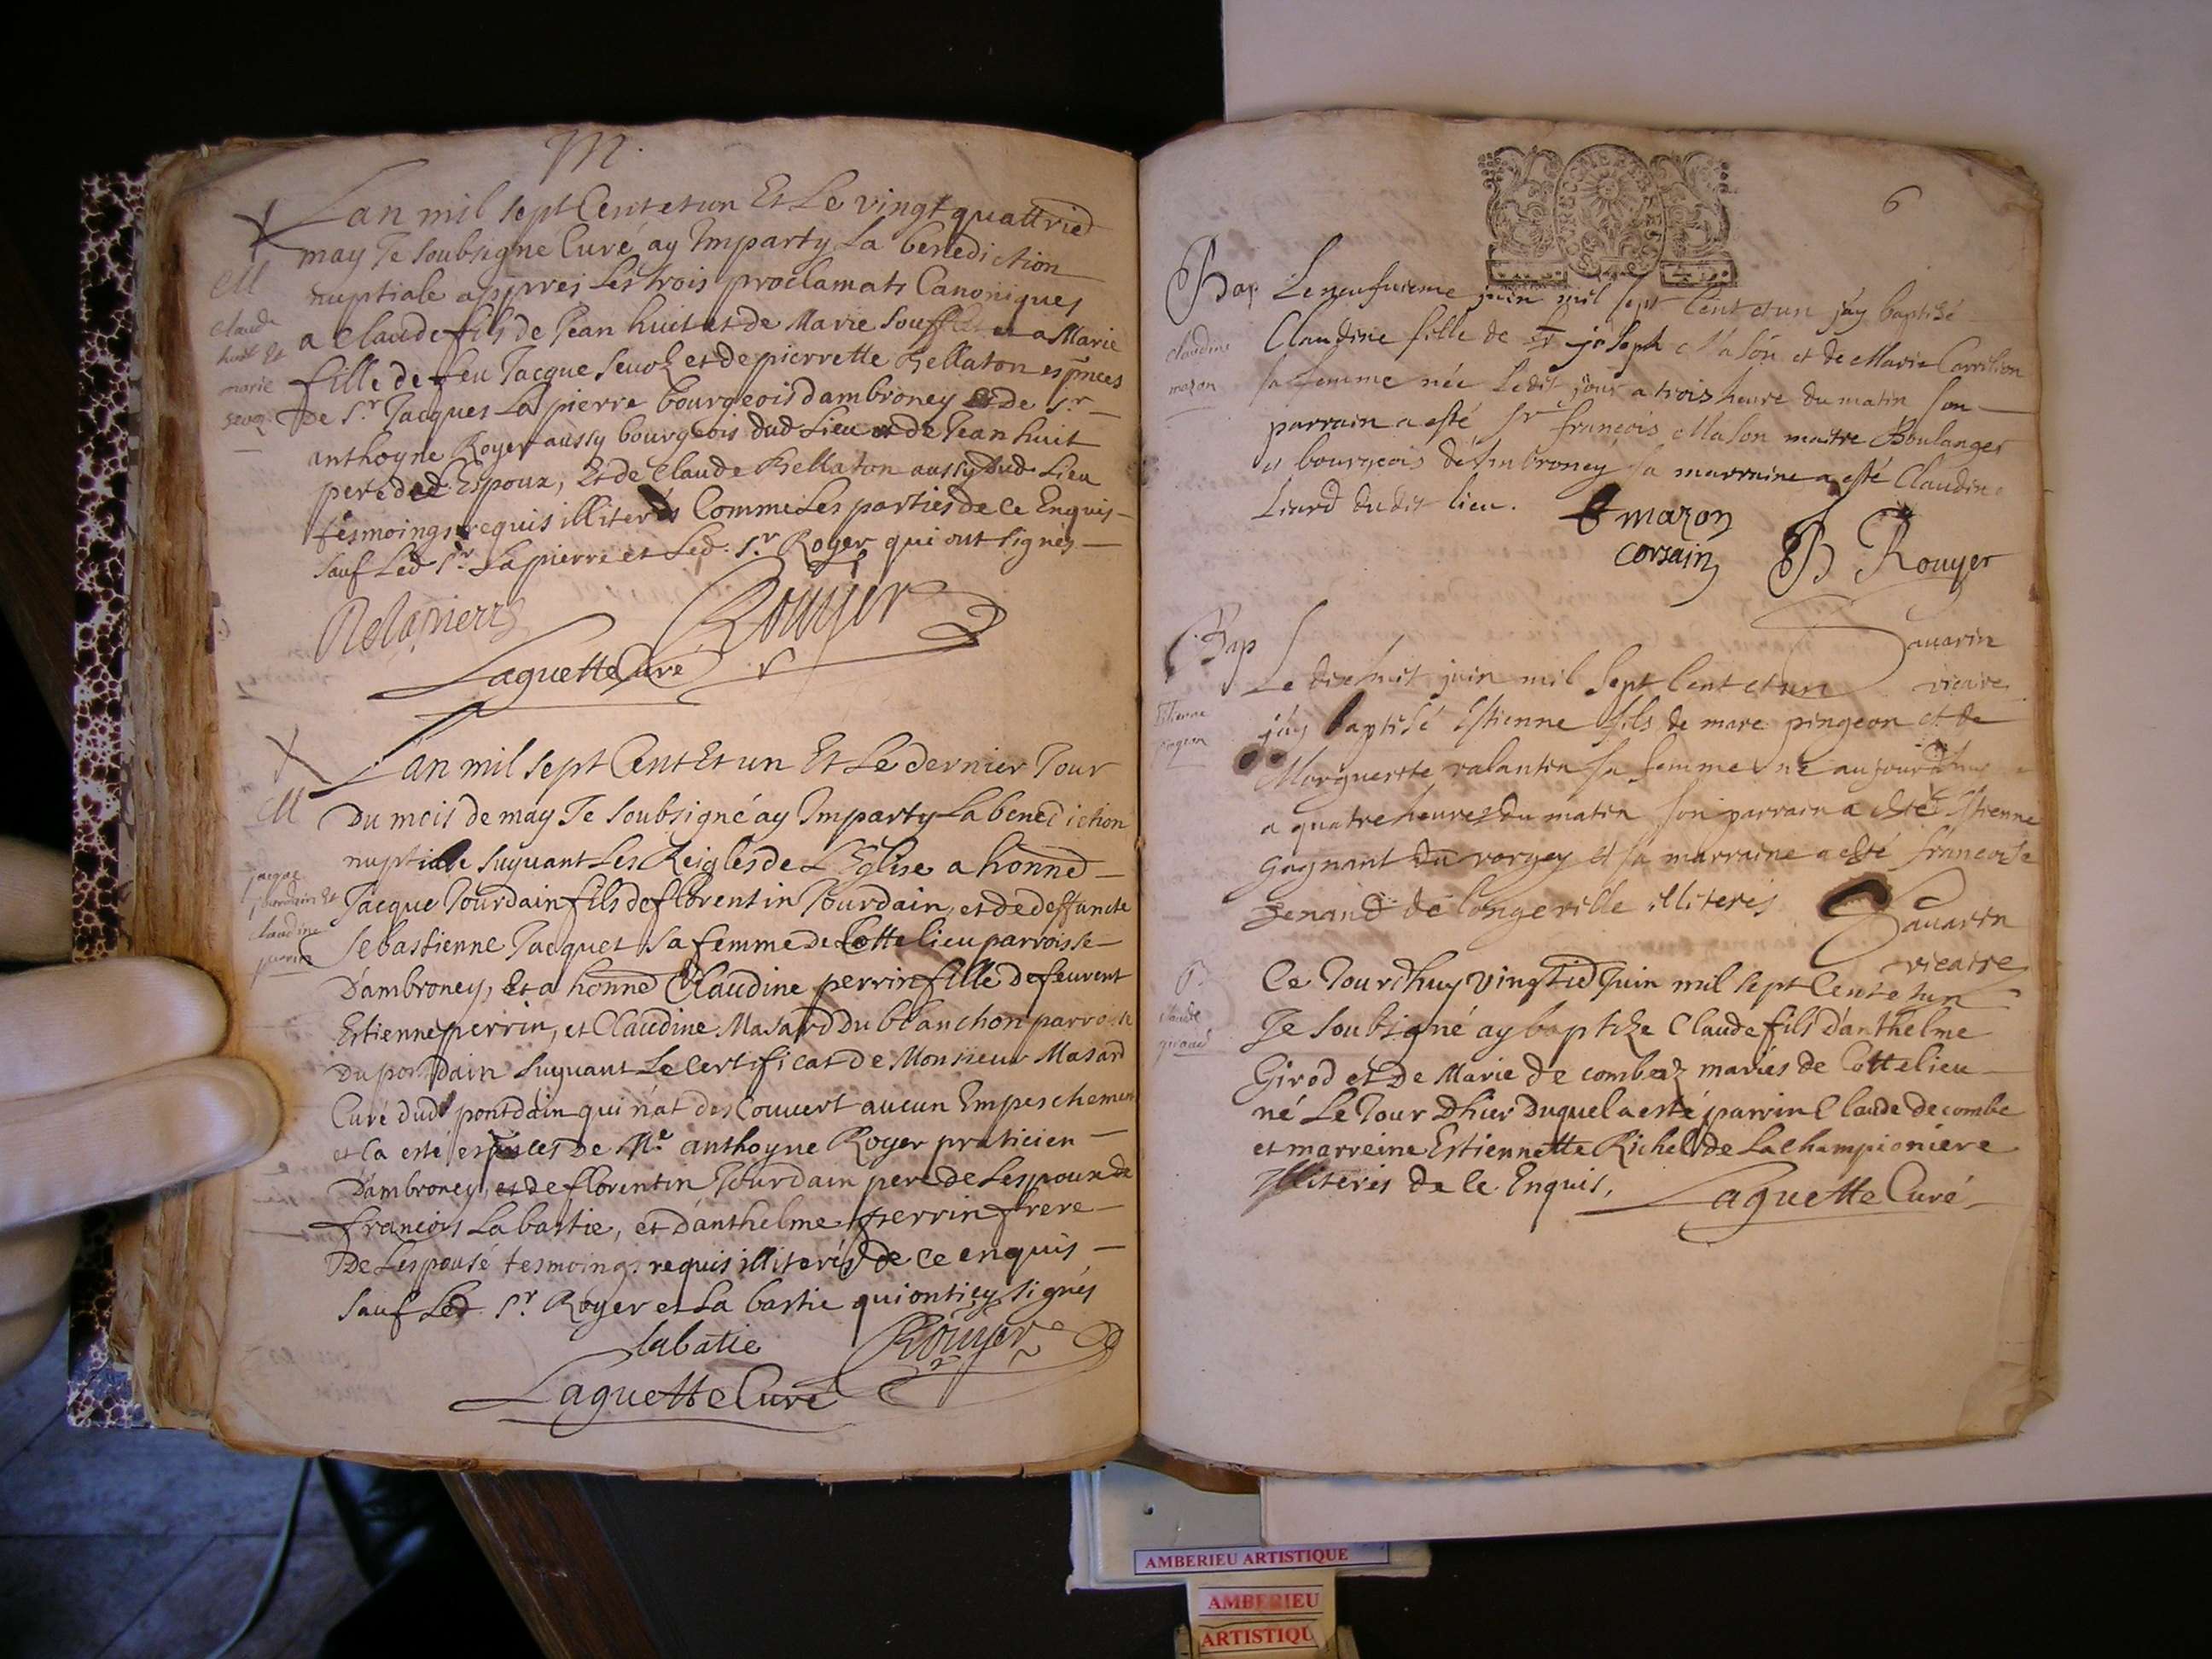 M.
Lan mil sept Cent et un Et Le vingt quattried
may Je soubsigné Curé ay Imparty La benediction
nuptiale appres Les trois proclamats Canoniques
a Claude fils de Jean huit et de Marie et a Marie
fille de feu Jacque et de pierrette Bellaton espnces
De Sr. Jacques Lapierre bourgeois dambroney et de Sr.
anthoyne Royer aussy bourgeois dud Lieu et de Jean huit
pere dud Espoux, Et de Claude Bellaton aussy dud Lieu
tesmoings requis illiterés Comme Les parties de Ce Enquis
Sauf Led Sr. Lapierre et Led. Sr. Royer qui ont signés
M
Claude
huit Et
marie
Delapierre
Roüyer
Laguette Curé
Lan mil sept Cent Et un Et Le dernier Jour
Du mois de may Je soubsigné ay Imparty La benediction
nuptiale suyuant Les Reigles de L'Eglise a honned
Jacque Jourdain fils de florentin Jourdain, et de deffuncte
Sebastienne Jacquet sa femme de Cottelieu parroisse
D'ambroney, Et a honned Claudine perrin fille de feurent
Estienne perrin, et Claudine Masard Du blanchon parroisse
Du pontdain suyuant Le Certificat de Monsieur Masard
Curé dud pontdain qui n'at descouuert aucun Empeschement
et la esté espnces De Me. anthoyne Royer praticien
D'ambroney, et de florentin Jourdain pere de Lespoux de
francois Labastie, et D'anthelme perrin frere
De Lespousé tesmoings requis illiterés de Ce enquis
Sauf Led. Sr. Royer et La bastie qui ont icy signés
M
jacque
jourdain Et
claudine
perrin
labatie
Roüyer
Laguette Curé
6
Bap
Le neufuieme juin mil sept Cent et un j'ay baptisé
Claudine fille de Sr joseph Mason et de Marie Carrilion
sa femme née Ledit jour a trois heure du matin son
parrain a esté Sr françois Mason maitre Boulanger
et bourgeois dAmbroney sa marraine a esté Claudine
Liard du dit lieu.
claudine
mazon
mazon
corsain
B Rouyer
Sauarin
vicaire
Bap
Le dix huit juin mil sept Cent et un
j'ay baptisé Estienne fils de marc pingeon et de
Morguerite valantin sa femme né aujourdhuy
a quatre heures du matin son parrain a esté Estienne
Gagnant du vorgey et sa marraine a esté francoise
Genand de longeville illiterés
Etienne
pingeon
Sauarin
vicaire
B
Ce Jourdhuy vingtied Juin mil sept Cent et un
Je soubsigné ay baptize Claude fils D'anthelme
Girod et De Marie De combez mariés de Cottelieu
né Le Jour Dhier Duquel a esté parrin Claude decombe
et marreine Estiennette Richel de La Championiere
Illiterés de Ce Enquis,
Claude
Laguette Curé
AMBERIEU ARTISTIQUE
AMBERIEU
ARTISTIQU